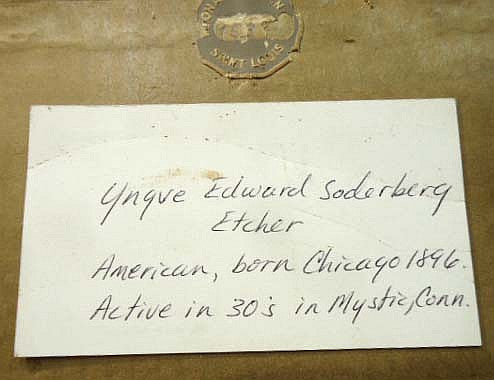 SAINT LOUIS
Yngve Edward Soderberg
Etcher
American, born Chicago 1896.
Active in 30's in Mystic, Conn.